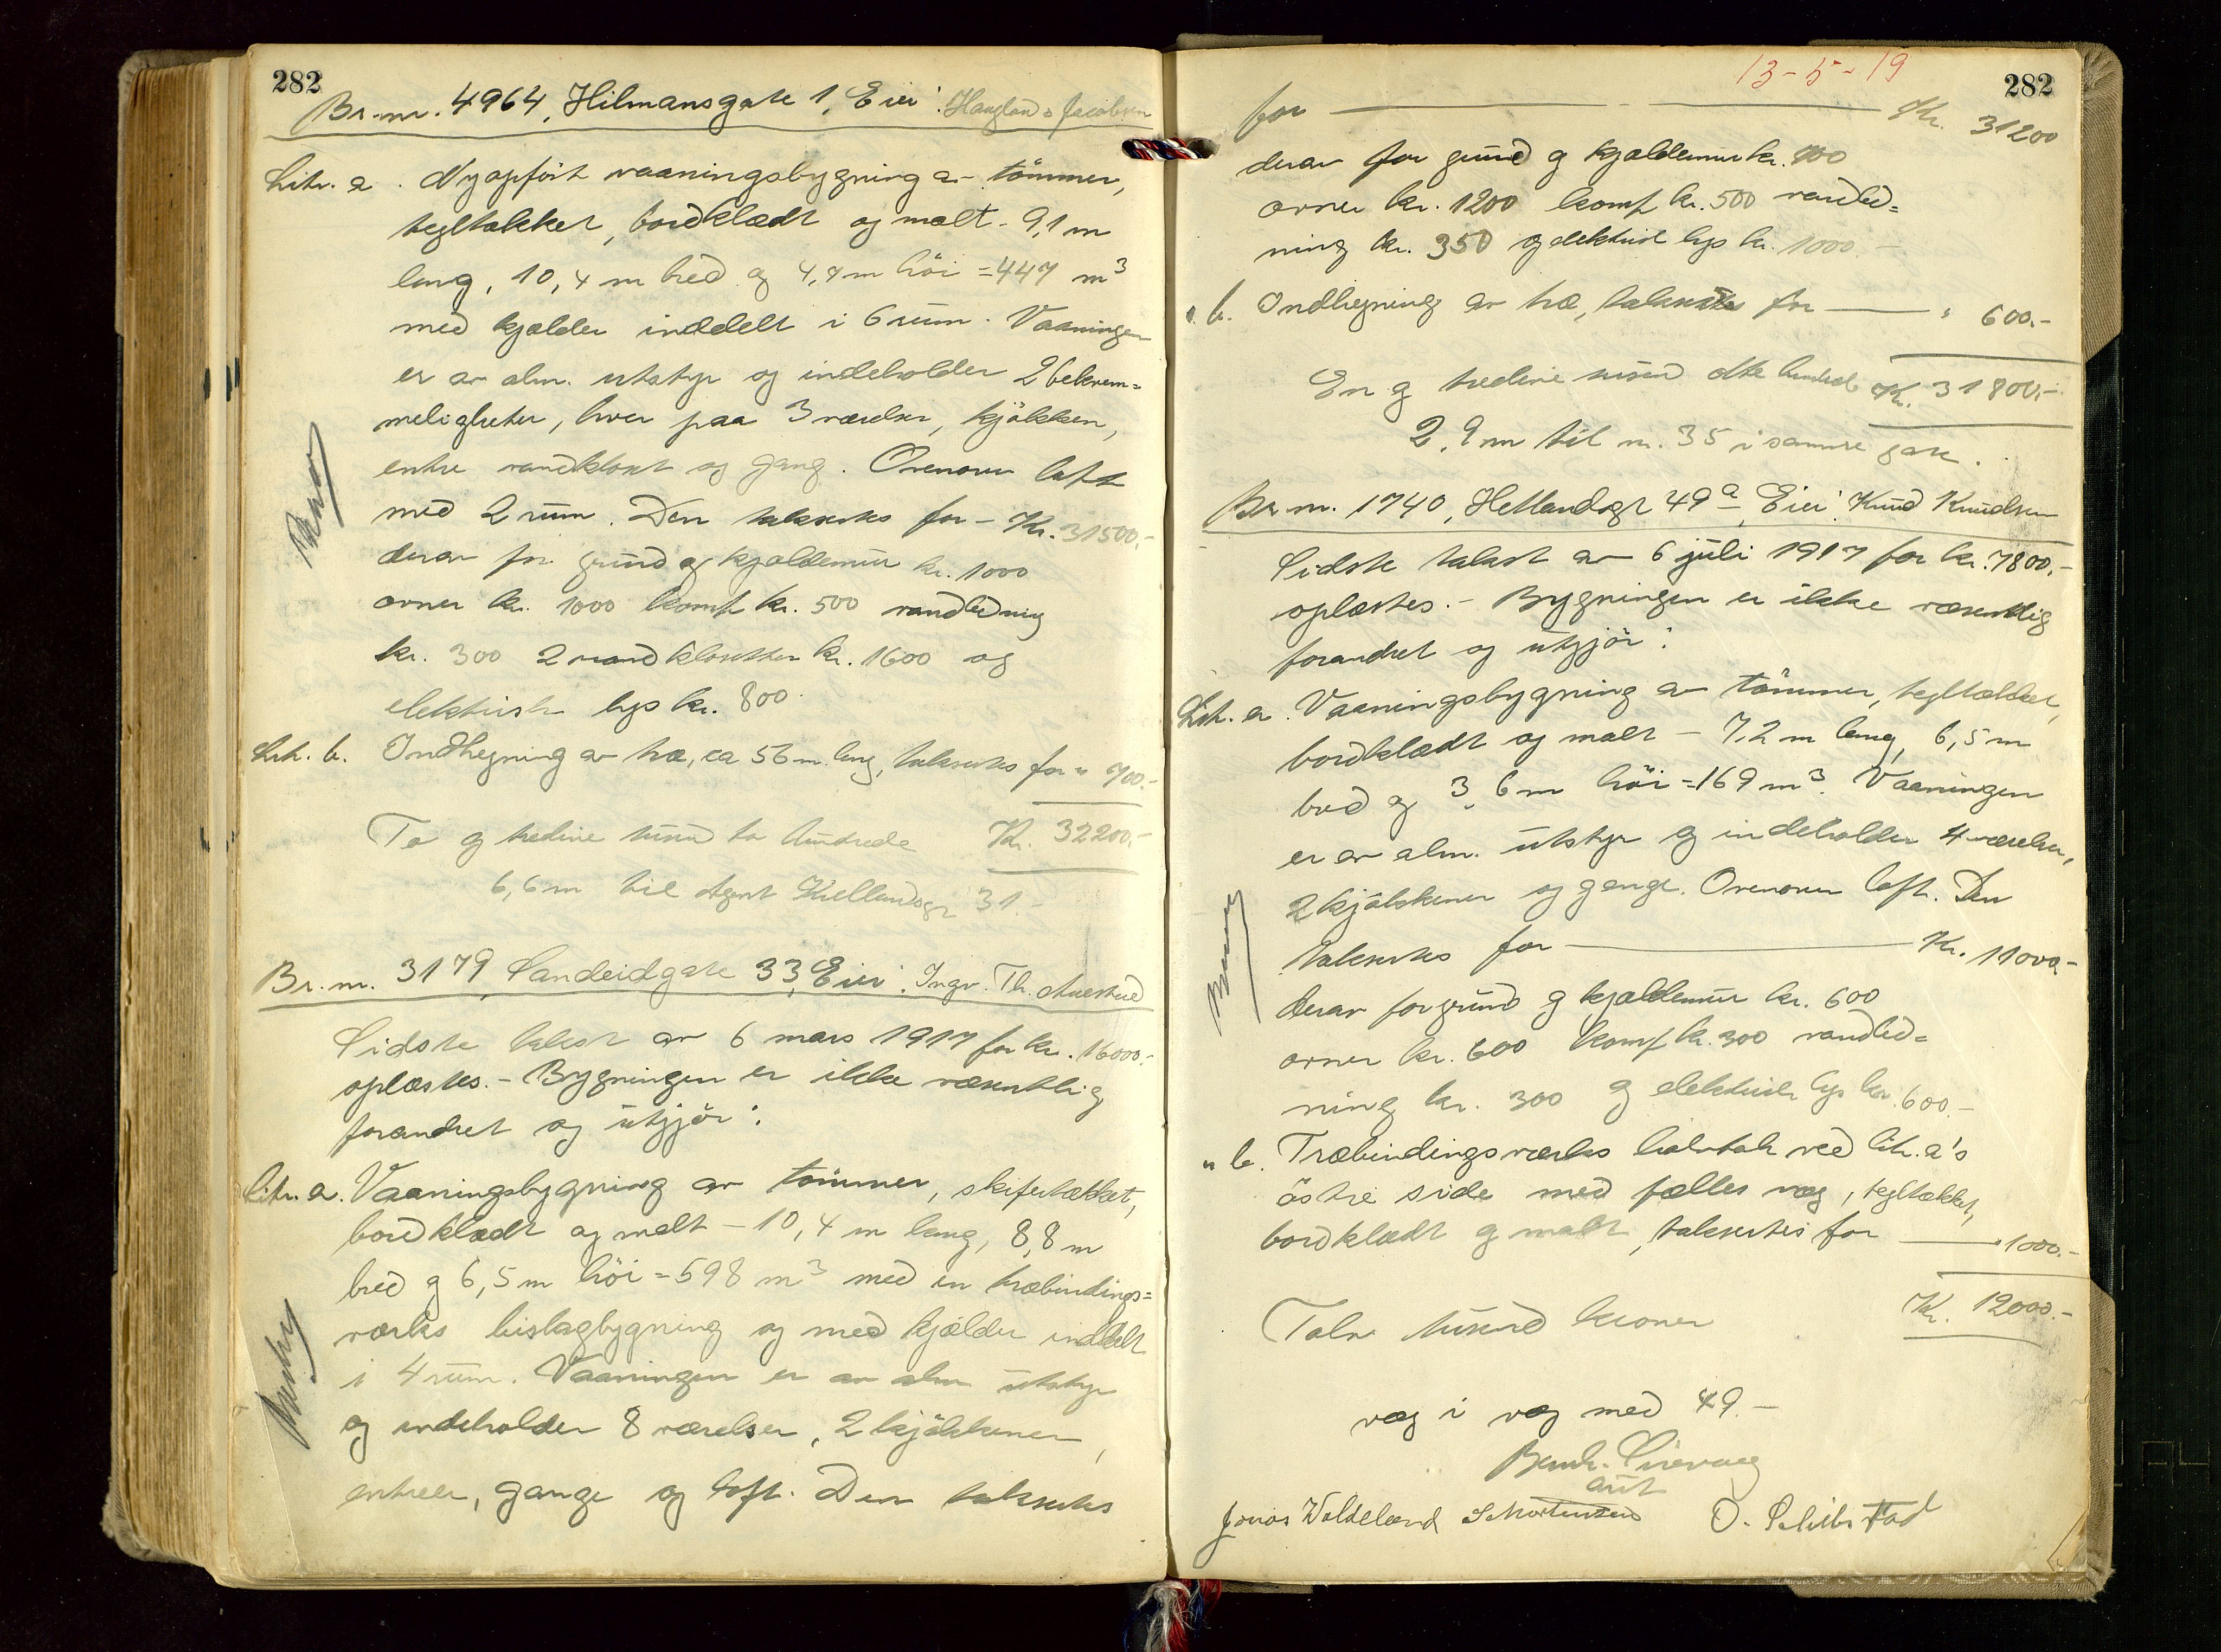 282
Br.nr. 4964, Hilmansgate 1, Eier: Haugland & Jacobsen
Litr. a. Nyopført vaaningsbygning av tömmer,
tegltækket, bordklædt og malt - 9,1 m
lang, 10,4 m bred og 4,7 m höi = 447 m³
med kjælder inddelt i 6 rum. Vaaningen
er av alm. utstyr og indeholder 2 bekvem=
meligheter, hver paa 3 værelser, kjökken,
entre vandkloset og gang. Ovenover loft
med 2 rum. Den takseres for - Kr. 31500.-
derav for grund og kjældermur kr. 1000
ovner kr. 1000 komf. kr. 500 vandledning
kr. 300 2 vandklosetter kr. 1600 og
elektrisk lys kr. 800.
Litr. b. Indhegning av træ, ca 56 m. lang, takseres for " 700.-
To og tredive tusen to hundrede Kr. 32200.-
6,6 m til Agent Kiellandsgt 31.-
Br.nr. 3179, Sandeidgate 33, Eier: Ingv. Th. Auestad
Sidste takst av 6 mars 1917 for kr. 16000.-
oplæstes. - Bygningen er ikke væsentlig
forandret og utgjör:
Litr. a. Vaaningsbygning av tömmer, skifertækket,
bordklædt og malt - 10,4 m lang, 8,8 m
bred og 6,5 m höi = 598 m³ med en træbindings=
verks bislagbygning og med kjælder inddelt
i 4 rum. Vaaningen er av alm utstyr
og indeholder 8 værelser, 2 kjökkener,
entreer, gange og loft. Den takseres
13-5-19
282
for Kr. 31200
derav for grund og kjældermur kr. 700
ovner kr. 1200 komf kr. 500 vandled=
ning kr. 350 og elektrisk lys kr. 1000.-
" b. Indhegning av træ, takseres for " 600.-
En og tredive tusen otte hundrede Kr. 31800.-
2,9 m til nr. 35 i samme gate.
Br nr. 1740, Hetlandsgt 49a, Eier: Knud Knudsen
Sidste takst av 6 juli 1917 for kr. 7800.-
oplæstes. - Bygningen er ikke væsentlig
forandret og utgjör:
Litr. a. Vaaningsbygning av tömmer, tegltækket,
bordklædt og malt - 7,2 m lang, 6,5 m
bred og 3,6 m höi = 169 m³. Vaaningen
er av alm. utstyr og indeholder 4 værelser,
2 kjökkener og gange. Ovenover loft. Den
takseres for Kr. 11000.-
derav for grund og kjældermur kr. 600
ovner kr. 600 komf kr. 300 vandled=
ning kr. 300 og elektrisk lys kr. 600.-
" b. Træbindingsverks halvtak ved litr. a's
östre side med fælles væg, tegltækket,
bordklædt og malt, takseres for " 1000.-
Tolv tusend kroner Kr. 12000.-
væg i væg med 49.-
Bernh. Sirevaag
Jonas Woldeland S Mortensen O. Schibstad